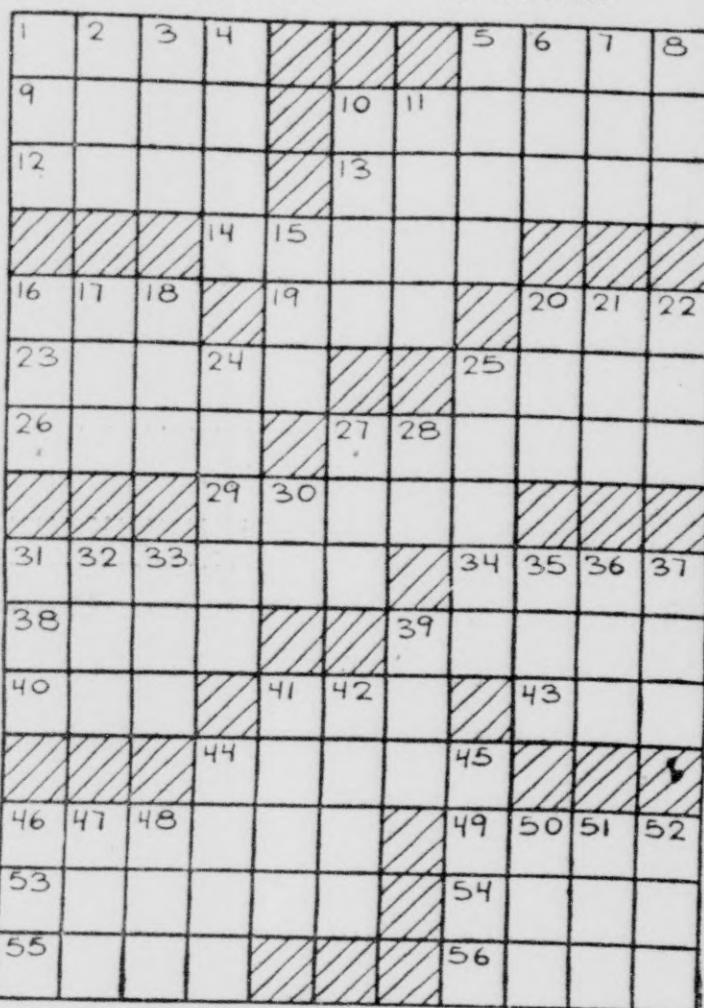 1 2 3 4 5 6 7 8
9 10 11
12 13
14 15
16 17 18 19 20 21 22
23 24 25
26 27 28
29 30
31 32 33 34 35 36 37
38 39
40 41 42 43
44 45
46 47 48 49 50 51 52
53 54
55 56